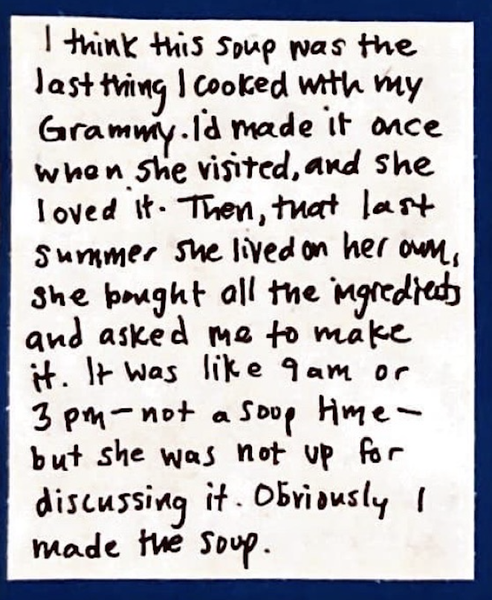 I think this soup was the
last thing I cooked with my
Grammy. I'd made it once
when she visited, and she
loved it. Then, that last
summer she lived on her own,
she bought all the ingredients
and asked me to make
it. It was like 9am or
3pm—not a soup time—
but she was not up for
discussing it. Obviously I
made the soup.